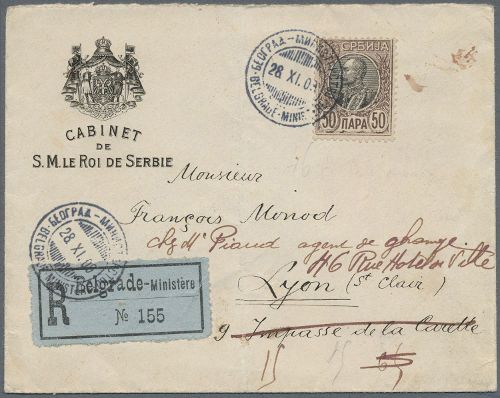 CABINET
DE
S.M. LE ROI DE SERBIE
БЕОГРАД - МИНИСТ
28 XI.05
BELGRADE-MINIST
СРБИЈА
50 ПАРА 50
Monsieur
François Monod
chez Mr Picaud agent de change
46 Rue Hotel de Ville
Lyon (St Clair)
9 Impasse de la Carette
БЕОГРАД - МИНИСТ
28 XI.05
BELGRADE-MINISTÈRE
R Belgrade-Ministère
№ 155
15
15